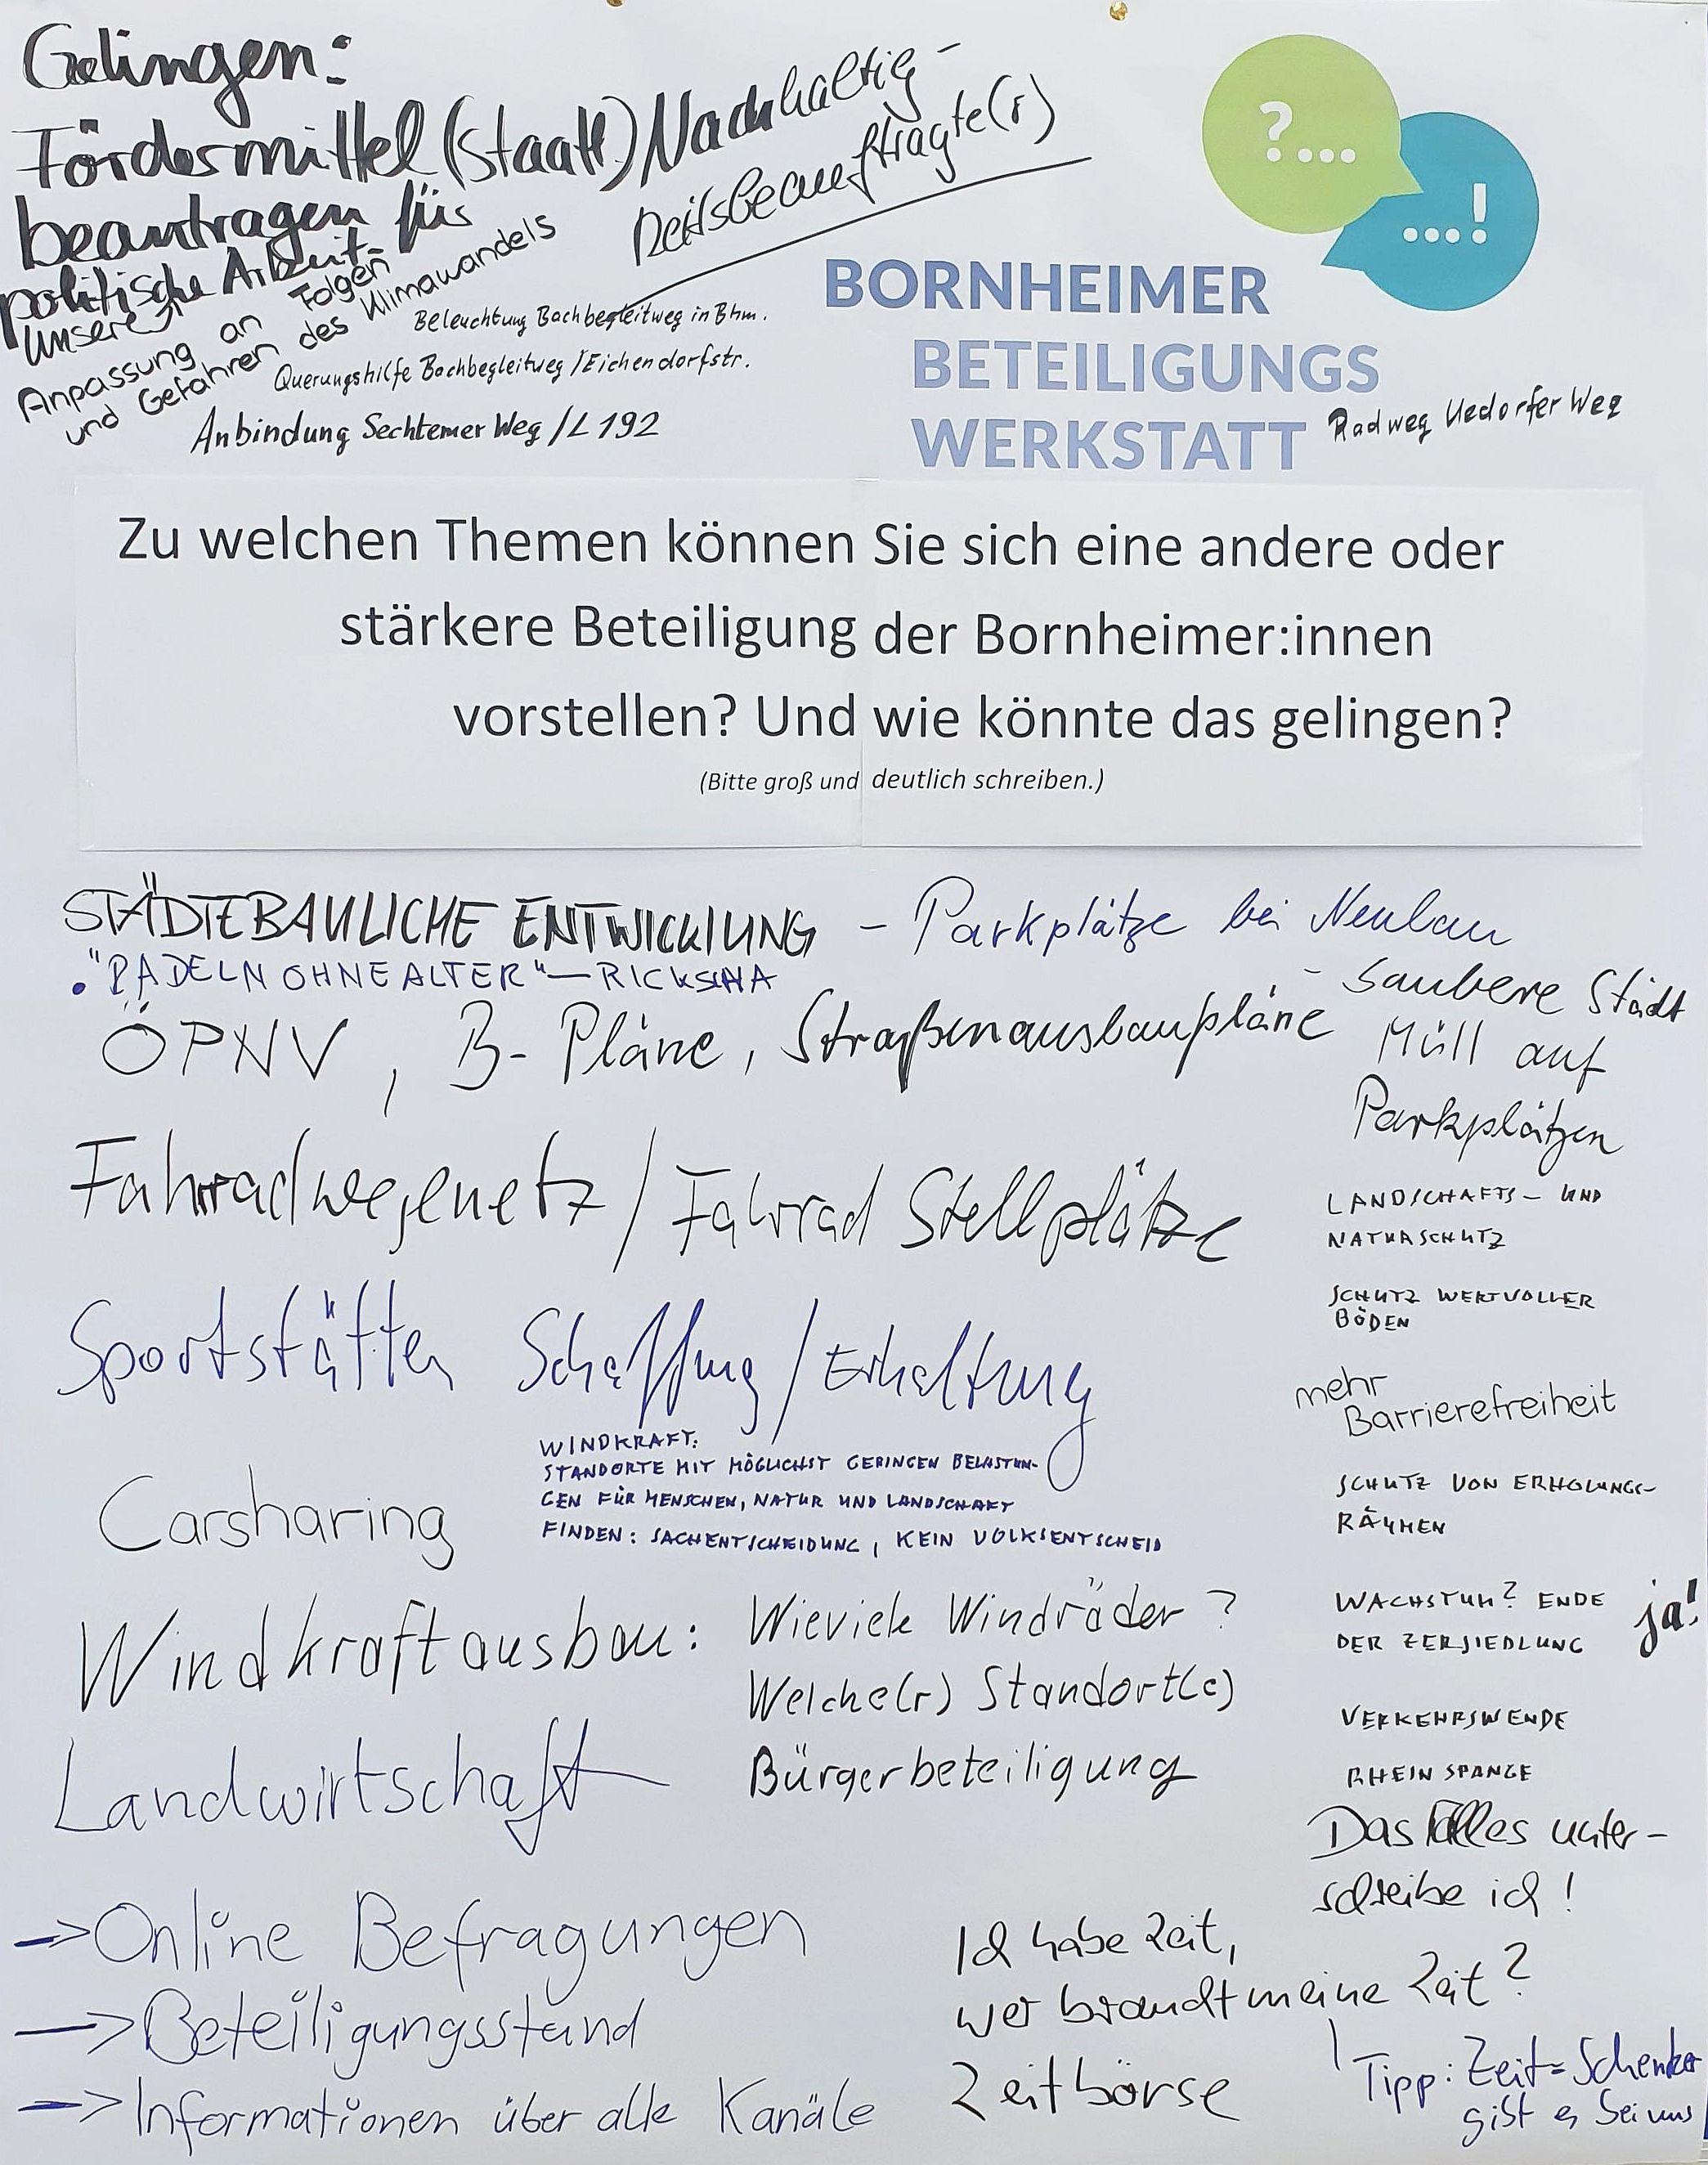 Gelingen:
Fördermittel (Staatl.)
beantragen für
politische Arbeit
Unsere
Nachhaltig-
keitsbeauftragte(r)
Anpassung an Folgen
und Gefahren des Klimawandels
Beleuchtung Bachbegleitweg in Bhm.
Querungshilfe Bachbegleitweg / Eichendorfstr.
Anbindung Sechtemer Weg / L 192
?...
...!
BORNHEIMER
BETEILIGUNGS
WERKSTATT
Radweg Uedorfer Weg
Zu welchen Themen können Sie sich eine andere oder
stärkere Beteiligung der Bornheimer:innen
vorstellen? Und wie könnte das gelingen?
(Bitte groß und deutlich schreiben.)
STÄDTEBAULICHE ENTWICKLUNG
- Parkplätze bei Neubau
• "RADELN OHNE ALTER" — RICKSHA
- Saubere Stadt
Müll auf
Parkplätzen
ÖPNV, B-Pläne, Straßenausbaupläne
Fahrradwegenetz / Fahrrad Stellplätze
Sportstätten Schaffung / Erhaltung
WINDKRAFT:
STANDORTE MIT MÖGLICHST GERINGEN BELASTUN-
GEN FÜR MENSCHEN, NATUR UND LANDSCHAFT
FINDEN: SACHENTSCHEIDUNG, KEIN VOLKSENTSCHEID
Carsharing
Windkraftausbau: Wieviele Windräder?
Welche(r) Standort(e)
Bürgerbeteiligung
Landwirtschaft
LANDSCHAFTS- UND
NATURSCHUTZ
SCHUTZ WERTVOLLER
BÖDEN
mehr
Barrierefreiheit
SCHUTZ VON ERHOLUNGS-
RÄUMEN
WACHSTUM? ENDE
DER ZERSIEDLUNG
ja!
VERKEHRSWENDE
RHEINSPANGE
Das alles unter-
schreibe ich!
-> Online Befragungen
-> Beteiligungsstand
-> Informationen über alle Kanäle
Ich habe Zeit,
wer braucht meine Zeit?
Zeitbörse
Tipp: Zeit=Schenker
gibt es bei uns